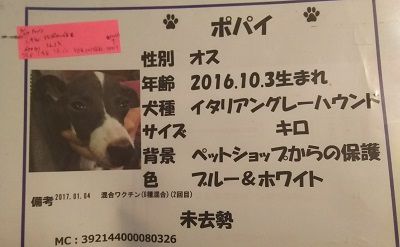 ポパイ
性別 オス
年齢 2016.10.3生まれ
犬種 イタリアングレーハウンド
サイズ キロ
背景 ペットショップからの保護
色 ブルー&ホワイト
備考 2017.01.04 混合ワクチン(6種混合)(2回目)
未去勢
MC:392144000080326